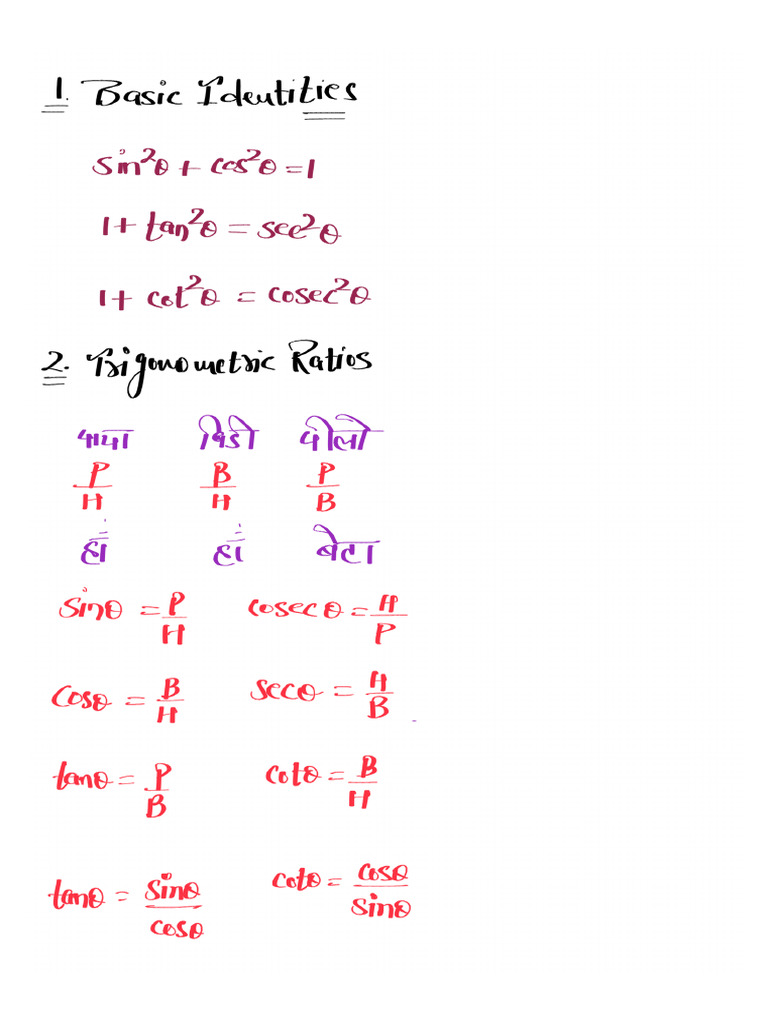 1. Basic Identities
sin²θ + cos²θ = 1
1 + tan²θ = sec²θ
1 + cot²θ = cosec²θ
2. Trigonometric Ratios
पापा बिडी पीलो
P/H B/H P/B
हाँ हाँ बेटा
sinθ = P/H cosecθ = H/P
cosθ = B/H secθ = H/B
tanθ = P/B cotθ = B/H
tanθ = sinθ/cosθ cotθ = cosθ/sinθ